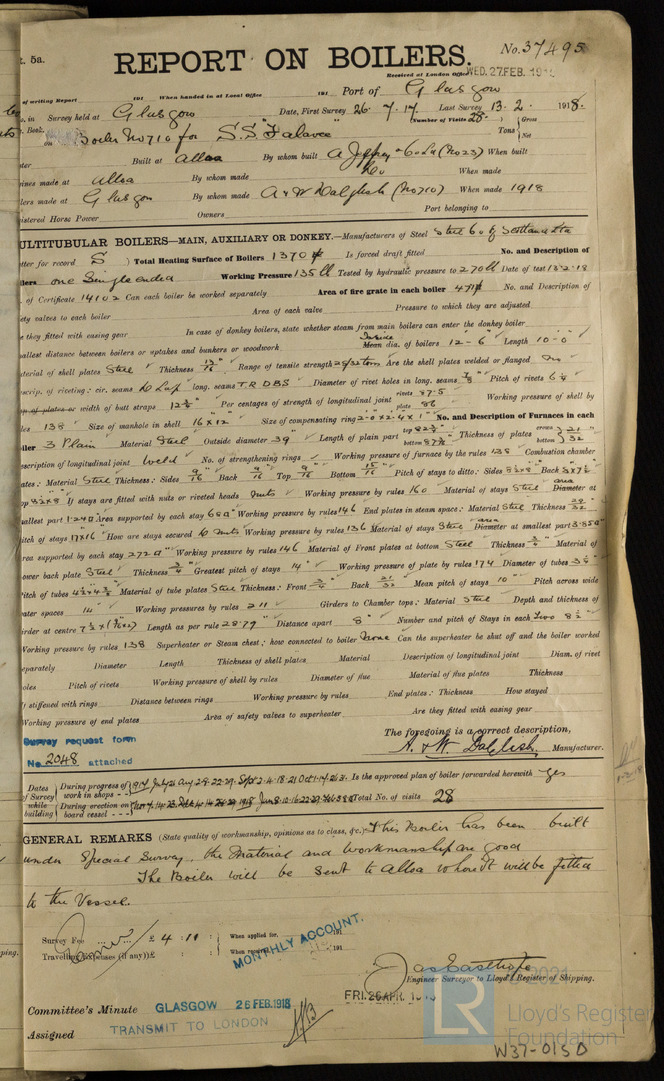 t. 5a.
REPORT ON BOILERS.
No. 37495
Received at London Office WED. 27 FEB. 191
of writing Report 191 When handed in at Local Office 191 Port of Glasgow
No. in Survey held at Glasgow Date, First Survey 26-7-17 Last Survey 13-2-1918
Book. (Number of Visits 28)
on Boiler No 710 for S.S. "Talavee" Tons { Gross Net
Built at Alloa By whom built A Jeffrey & Co Ld (No 23) When built
ines made at Alloa By whom made Do When made
lers made at Glasgow By whom made A & W Dalglish (No 710) When made 1918
istered Horse Power Owners Port belonging to
ULTITUBULAR BOILERS—MAIN, AUXILIARY OR DONKEY.—Manufacturers of Steel Steel Co of Scotland Ltd
tter for record S ) Total Heating Surface of Boilers 1370 Is forced draft fitted No. and Description of
lers one Single ended Working Pressure 135 lb Tested by hydraulic pressure to 270 lb Date of test 13-2-18
. of Certificate 14102 Can each boiler be worked separately Area of fire grate in each boiler No. and Description of
ety valves to each boiler Area of each valve Pressure to which they are adjusted
e they fitted with easing gear In case of donkey boilers, state whether steam from main boilers can enter the donkey boiler
allest distance between boilers or uptakes and bunkers or woodwork Inside Mean dia. of boilers 12-6" Length 10-0"
aterial of shell plates Steel Thickness 13/16" Range of tensile strength 28/32 tons Are the shell plates welded or flanged no
scrip. of riveting: cir. seams D Lap long. seams T.R DBS Diameter of rivet holes in long. seams 7/8" Pitch of rivets 6 1/4
ap of plates or width of butt straps 12 3/4" Per centages of strength of longitudinal joint rivets 87.5 plate 86 Working pressure of shell by
les 138 Size of manhole in shell 16"x12" Size of compensating ring 2-0"x2-4"x1" No. and Description of Furnaces in each
iler 3 Plain Material Steel Outside diameter 39 Length of plain part top 82 3/4" bottom 87 1/2" Thickness of plates crown 21/32 bottom
scription of longitudinal joint Weld No. of strengthening rings Working pressure of furnace by the rules 138 Combustion chamber
ates: Material Steel Thickness: Sides 9/16" Back 9/16" Top 9/16" Bottom 15/16" Pitch of stays to ditto: Sides 8 1/2"x8" Back 8"x7 1/2"
op 8 1/2"x8" If stays are fitted with nuts or riveted heads nuts Working pressure by rules 160 Material of stays Steel area Diameter at
allest part Area supported by each stay 68 Working pressure by rules 146 End plates in steam space: Material Steel Thickness 29/32
itch of stays 17"x16" How are stays secured D nuts Working pressure by rules 136 Material of stays Steel area Diameter at smallest part 3.85
rea supported by each stay 272 Working pressure by rules 146 Material of Front plates at bottom Steel Thickness 3/4" Material of
ower back plate Steel Thickness 3/4" Greatest pitch of stays 14" Working pressure of plate by rules 174 Diameter of tubes 3 1/4"
itch of tubes 4 1/2"x4 3/8" Material of tube plates Steel Thickness: Front 3/4" Back 21/32 Mean pitch of stays 10" Pitch across wide
ater spaces 14" Working pressures by rules 211 Girders to Chamber tops: Material Steel Depth and thickness of
irder at centre Length as per rule 28.79" Distance apart 8" Number and pitch of Stays in each two 8 1/2"
Working pressure by rules 138 Superheater or Steam chest; how connected to boiler None Can the superheater be shut off and the boiler worked
eparately Diameter Length Thickness of shell plates Material Description of longitudinal joint Diam. of rivet
oles Pitch of rivets Working pressure of shell by rules Diameter of flue Material of flue plates Thickness
f stiffened with rings Distance between rings Working pressure by rules End plates: Thickness How stayed
Working pressure of end plates Area of safety valves to superheater Are they fitted with easing gear
Survey request form No. 2048 attached
The foregoing is a correct description,
A. & W. Dalglish. Manufacturer.
Dates of Survey while building
During progress of work in shops
Is the approved plan of boiler forwarded herewith yes
During erection on board vessel
Total No. of visits 28
GENERAL REMARKS (State quality of workmanship, opinions as to class, &c.) This Boiler has been built
under Special Survey, the Material and workmanship are good
The Boiler will be sent to Alloa where it will be fitted
to the Vessel.
Survey Fee £ 4 : 11 : When applied for, 191
Travelling Expenses (if any) £ : : When received, 191
MONTHLY ACCOUNT.
Jas Easthope
Engineer Surveyor to Lloyd's Register of Shipping.
FRI. 26 APR. 1918
Committee's Minute GLASGOW 26 FEB. 1918
Assigned TRANSMIT TO LONDON
2021
LR
Lloyd's Register
Foundation
W37-0150